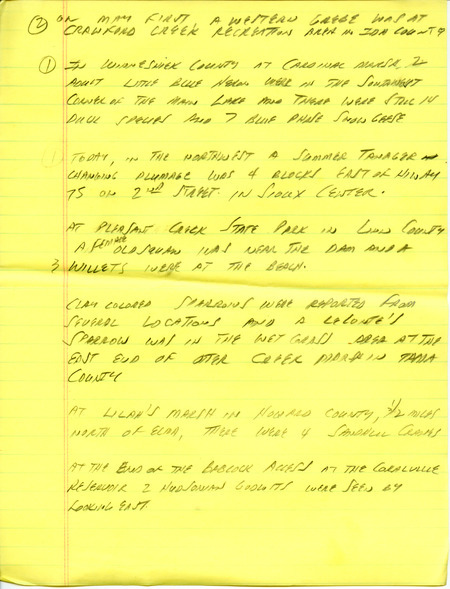 ② ON MAY FIRST A WESTERN GREBE WAS AT
CRAWFORD CREEK RECREATION AREA IN IDA COUNTY
① IN WINNESHIEK COUNTY AT CARDINAL MARSH, 2
ADULT LITTLE BLUE HERON WERE IN THE SOUTHWEST
CORNER OF THE MAIN LAKE AND THERE WERE STILL 14
DUCK SPECIES AND 7 BLUE PHASE SNOW GEESE
① TODAY, IN THE NORTHWEST A SUMMER TANAGER
CHANGING PLUMAGE WAS 4 BLOCKS EAST OF HIWAY
75 ON 2ND STREET IN SIOUX CENTER.
AT PLEASANT CREEK STATE PARK IN LINN COUNTY
A FEMALE OLDSQUAW WAS NEAR THE DAM AND A
3 WILLETS WERE AT THE BEACH.
CLAY COLORED SPARROWS WERE REPORTED FROM
SEVERAL LOCATIONS AND A LECONTE'S
SPARROW WAS IN THE WET GRASS AREA AT THE
EAST END OF OTTER CREEK MARSH IN TAMA
COUNTY
AT LYLAH'S MARSH IN HOWARD COUNTY, 1/2 MILES
NORTH OF ELMA, THERE WERE 4 SANDHILL CRANES
AT THE END OF THE BABCOCK ACCESS AT THE CORALVILLE
RESERVOIR 2 HUDSONIAN GODWITS WERE SEEN BY
LOOKING EAST.